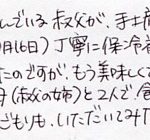 んでいる叔父が、手土
月16日)丁寧に保冷
たのですが、もう美味しくて
母(叔父の姉)と2人で、食
ごもりも、いただいてみ